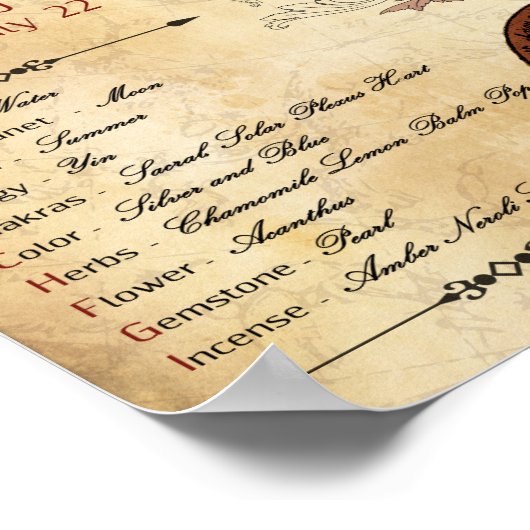 ly 22
Water
anet - Moon
- Summer
gy - Yin
akras - Sacral, Solar Plexus Hart
Color - Silver and Blue
Herbs - Chamomile Lemon Balm Pop
Flower - Acanthus
Gemstone - Pearl
Incense - Amber Neroli